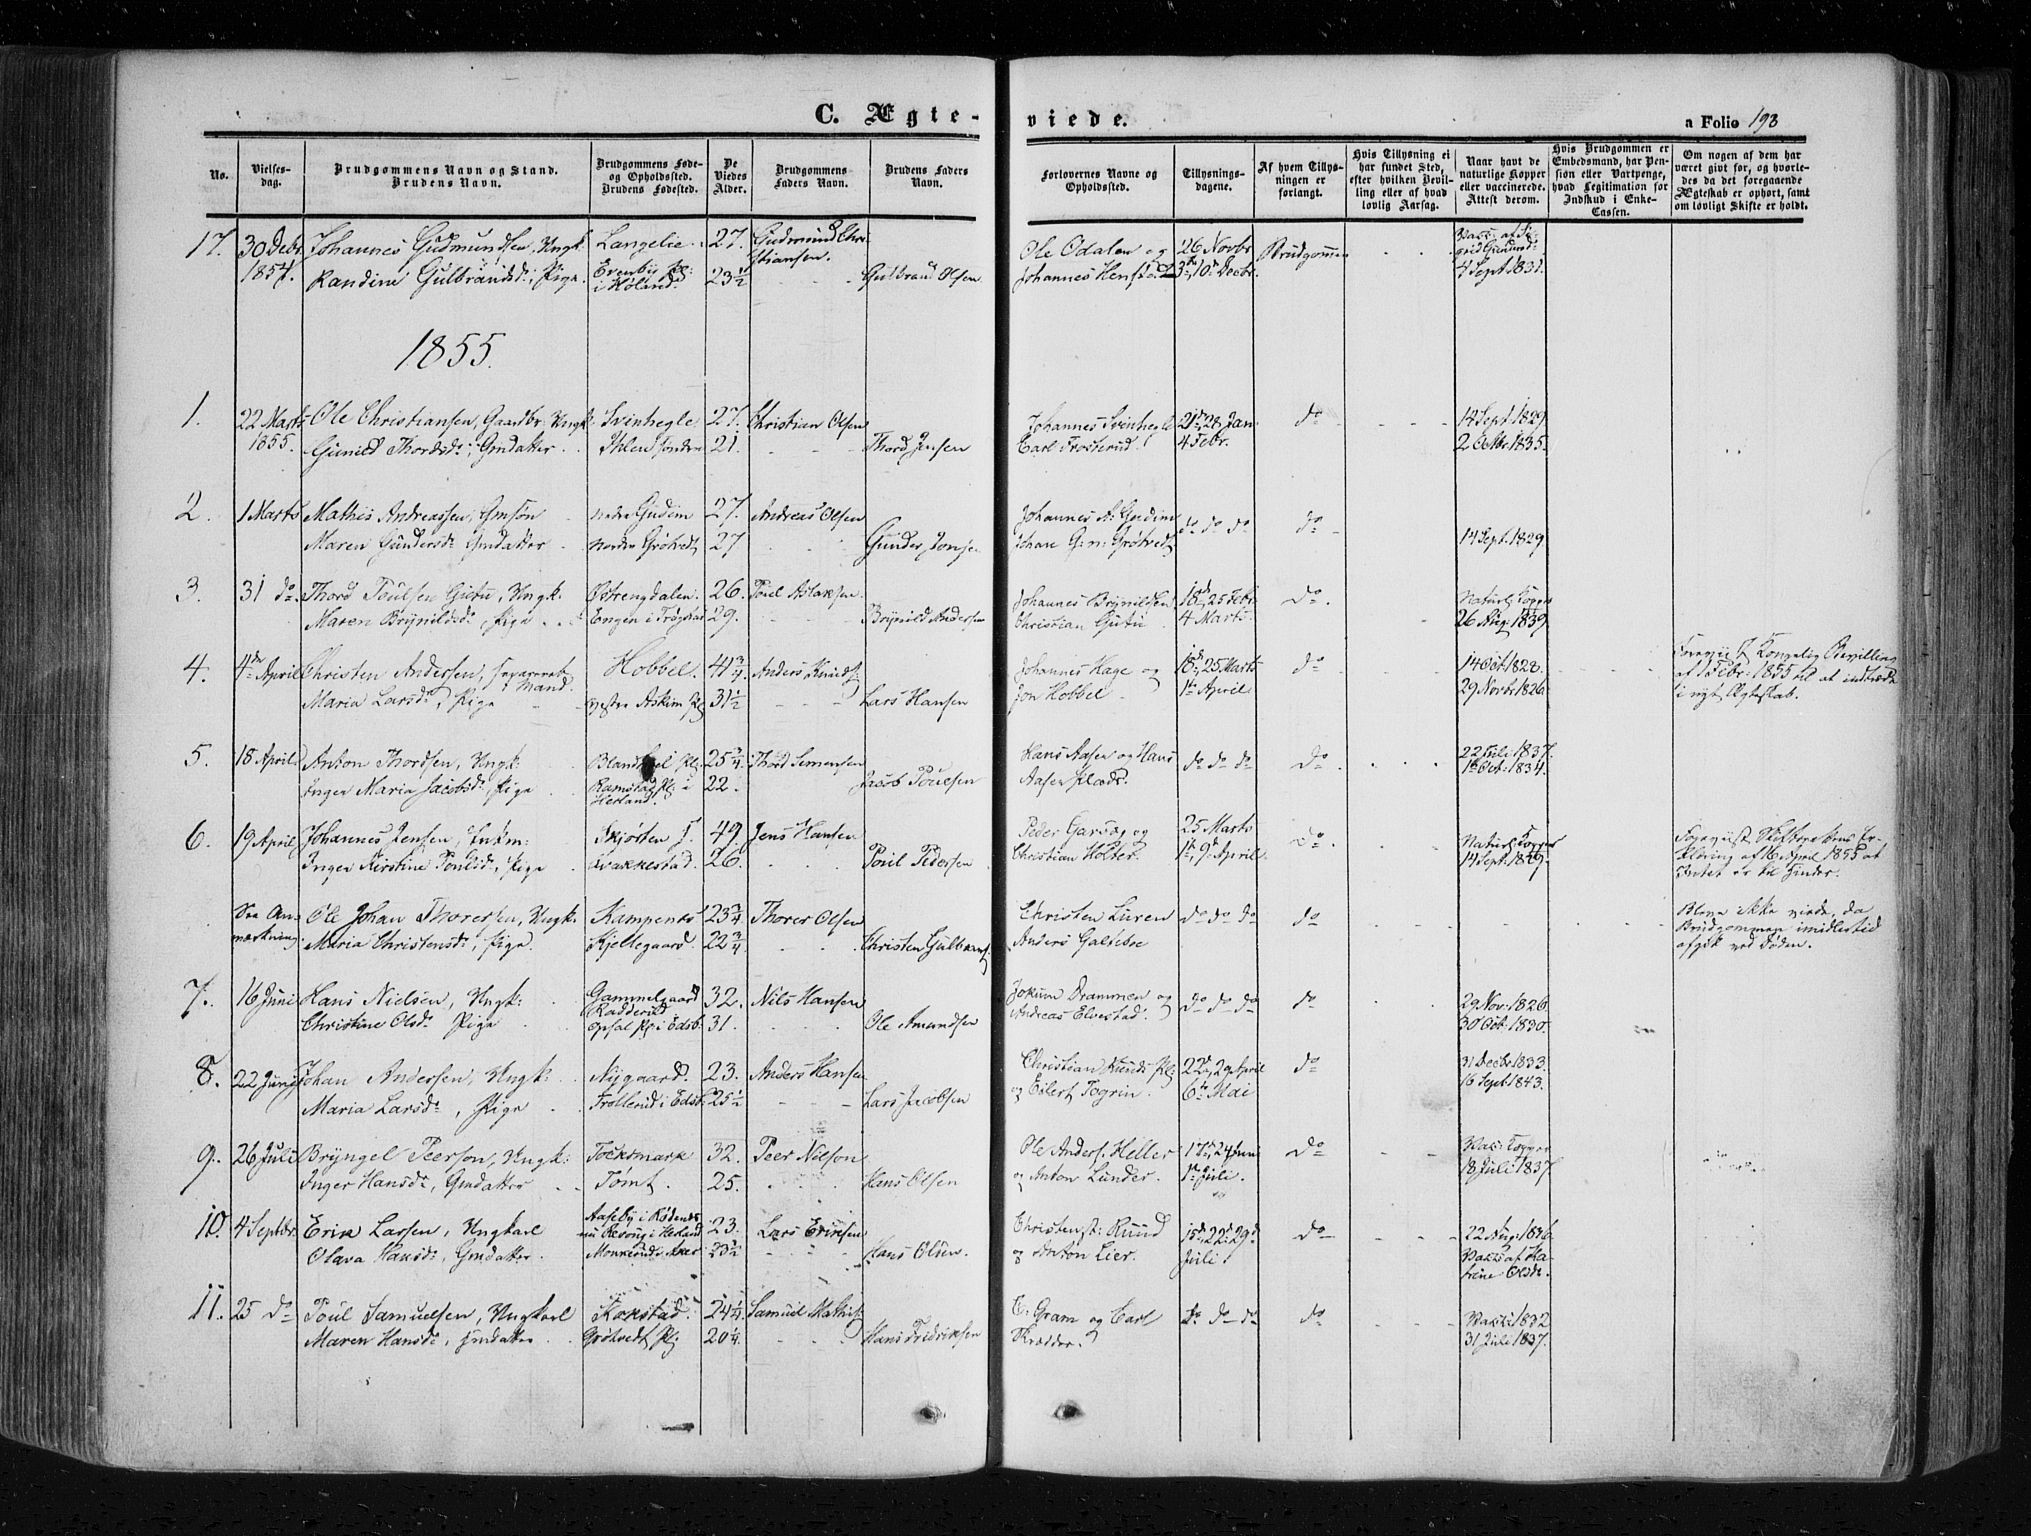 C. Ægte-
viede.
a Folio 193
No.
Vielses-
dag.
Brudgommens Navn og Stand.
Brudens Navn.
Brudgommens Føde-
og Opholdssted.
Brudens Fødested.
De
Viedes
Alder.
Brudgommens
Faders Navn.
Brudens Faders
Navn.
Forlovernes Navne og
Opholdssted.
Tillysnings-
dagene.
Af hvem Tillys-
ningen er
forlangt.
Hvis Tillysning ei
har fundet Sted,
efter hvilken Bevil-
ling eller af hvad
lovlig Aarsag.
Naar havt de
naturlige Kopper
eller vaccinerede.
Attest derom.
Hvis Brudgommen er
Embedsmand, har Pen-
sion eller Vartpenge,
hvad Legitimation for
Indskud i Enke-
Cassen.
Om nogen af dem har
været givt før, og hvorle-
des da det foregaaende
Ægteskab er ophørt, samt
om lovligt Skifte er holdt.
17.
30 Debr
1854.
Johannes Gudmundsen, Ungk.
Randine Gulbrandsd:, Pige
Langelie
Evenby Pl:
i Høland.
27.
23 1/2
Gudmund Chri
stiansen.
Gulbrand Olsen
Ole Odalen og
Johannes Henstad
26 Novbr
3die, 10de Decbr.
Brudgommen
4 Sept 1831.
1855.
1.
22 Marts
1855.
Ole Christiansen, Gaardbr. Ungk.
Gunild Thordsd:, Gmdatter
Svinhegle
Ihlen søndre
27.
21.
Christian Olsen
Thord Jensen
Johannes Svinhegle
Carl Frosterud.
21de, 28 Jan.
4 Febr.
do
14 Sept. 1829.
2 Octbr. 1835.
2.
1 Marts
Mathis Andreassen, Gmsøn
Maren Gundersd: Gmdatter
nedre Gudim
nordre Grøtvedt
27.
27
Andreas Olsen
Gunder Jonse
Johannes A: Gudim
Johan G: n: Grøtvedt
do do do
do
14 Sept: 1829
3.
31 do
Thord Poulsen Gutu, Ungk:
Maren Brynildsd:, Pige
Østrengdalen
Engen i Trøgstad
26.
29.
Poul Aslaksen
Brynild Andersen
Johannes Brynildsen
Christian Gutu
18de, 25 Febr
4 Marts.
do.
Naturl: Copper
26 Aug: 1839.
4.
4de April
Christen Andersen, separeret
Mand.
Maria Larsd:, Pige
Hobbel.
vestre Askim Pl:
41 3/4
31 1/2
Anders Knuds:
Lars Hansen
Johannes Hage og
Jon Hobbel
18de, 25 Marts
1ste April.
do
14 Oct: 1828.
29 Novbr 1826.
Foreviist Kongelig Bevilling
af 1 Febr. 1855 til at indtræde
i nyt Ægteskab.
5.
18 April
Anton Thordsen, Ungk:
Inger Maria Jacobsd:, Pige
Ramstad Pl: i
Herland.
25 3/4
22.
Thord Simensen
Jacob Poulsen
Hans Aasen og Hans
Aasen Plads.
do do do
do
22 Juli 1837.
1ste Oct: 1834.
6.
19 April
Johannes Jensen, Enkm:
Inger Kirstine Poulsd:, Pige
Skjørten
Krakkestad.
49.
26.
Jens Hansen
Poul Pedersen
Peder Garseg og
Christian Holter.
25 Marts
1ste, 9de April.
do
Naturl: Copper
14 Sept: 1829.
Foreviist Skifterettens Er-
klæring af 16 April 1855 at
Intet er til Hinder.
See An-
mærkning
Ole Johan Thorersen, Ungk:
Maria Christensd:, Pige.
Kampenes
Kjellegaard.
23 3/4
22 3/4
Thorer Olsen
Christen Gulbrands
Christen Luren
Anders Galtebøe
do do do
do
Bleve ikke viede, da
Brudgommen imidlertid
afgik ved Døden.
7.
16 Juni
Hans Nielsen, Ungk:
Christine Olsd: Pige
Gammelgaard
Radderud,
Opsal Pl: i Edsb.
32.
31.
Nils Hansen
Ole Amundsen
Jokum Drammen og
Andreas Elvestad.
do do do
do
29 Nov: 1826.
30 Oct: 1830.
8.
22 Juny
Johan Andersen, Ungk:
Maria Larsd:, Pige
Nygaard.
Trollerud i Edsb:
23.
25 1/2
Anders Hansen
Lars Jacobsen
Christian Ruuds Pl:
og Eilert Togrin.
22de, 29 April
6te Mai
do
31 Decbr 1833.
16 Sept: 1843.
9.
26 Juli
Bryngel Peerson, Ungk:
Inger Hansd:, Gmdatter
Tocksmark
Tømt.
32.
25.
Peer Nilson
Hans Olsen
Ole Anders: Heller
og Anton Lunder.
17de, 24 Juni
1ste Juli.
do
18 Juli 1837.
10.
4 Septbr.
Erik Larsen, Ungkarl
Olava Hansd:, Gmdatter.
Aaseby i Rødenes
nu Resong i Herland
23.
23 1/2
Lars Eriksen
Hans Olsen.
Christen st: Ruud
og Anton Lier.
15de, 22de, 29de
Juli.
do
22 Aug: 1836.
Vacc: af Ka-
trine Olsd:.
11.
25 do
Poul Samuelsen, Ungkarl
Maren Hansd:, Gmdatter
Kokstad.
Grøtvedt Pl:
24 1/4
20 1/4.
Samuel Mathis:
Hans Fredriksen
E: Gram og Carl
Skrædder.
do do do
do
Vacc: 1832
31 Juli 1837.